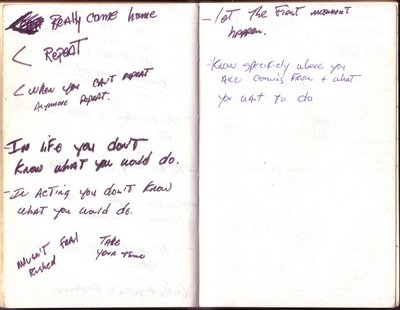 Really come home
< Repeat
< when you can't repeat
Anymore Repeat.
- In life you don't
know what you would do.
- In Acting you don't know
what you would do.
Feel
Rushed
Take
Your Time
- let the First moment
happen.
- Know specificly where you
Are coming From + what
you want to do